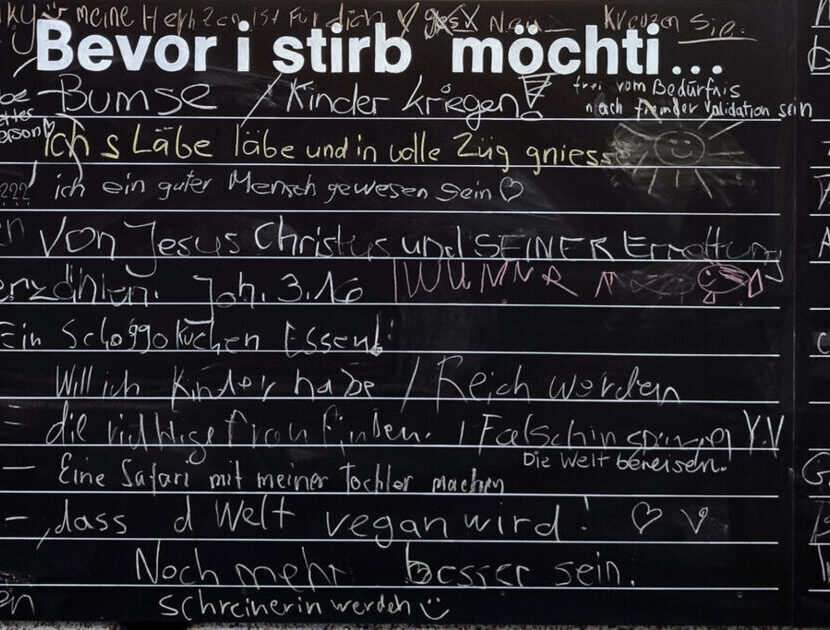 meine ist für dich
Kreuzen Sie.
Bevor i stirb möchti...
Bumse / Kinder kriegen!
frei vom Bedürfnis
nach fremder Validation sein
Ich s Läbe läbe und in volle Züg gniesse
??? ich ein guter Mensch gewesen sein ♡
Von Jesus Christus und SEINER Errettung
erzählen. Joh. 3.16
Ein Schoggokuchen Essen!
Will ich Kinder habe / Reich werden
- die richtige Frau finden. /
Die Welt bereisen.
- Eine Safari mit meiner Tochter machen
- , dass d Welt vegan wird! ♡ V
Noch mehr besser sein.
Schreinerin werden